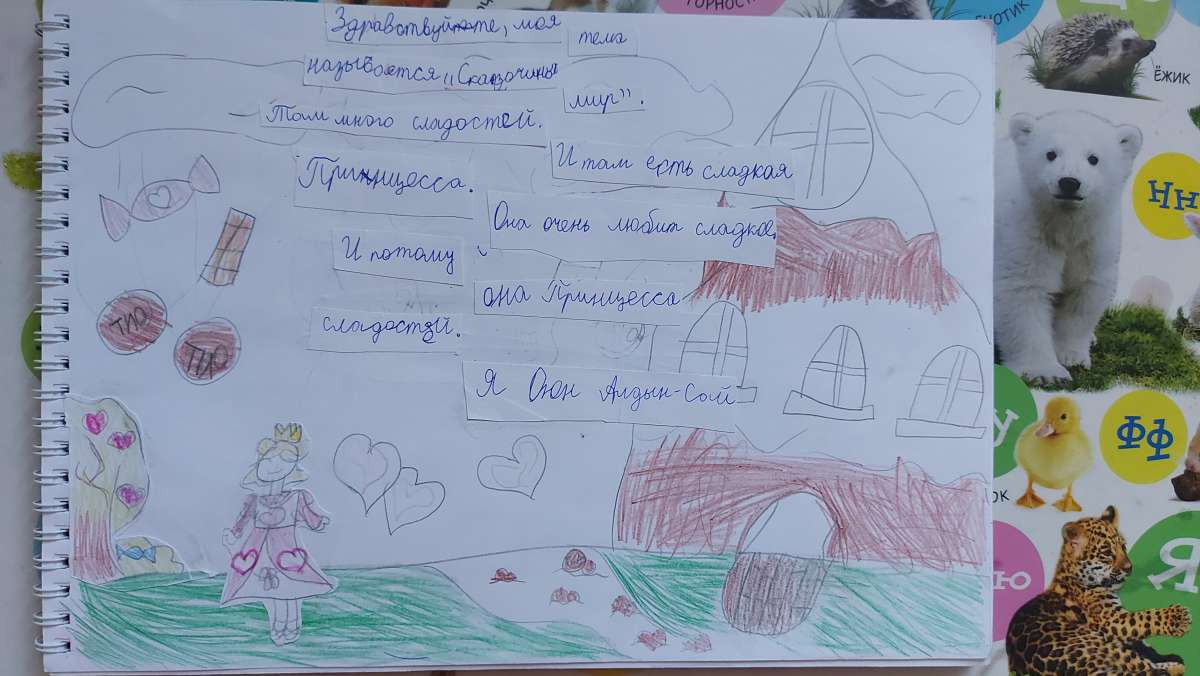 Здравствуйте, моя тема
называется „Сказочный мир”.
Там много сладостей.
И там есть сладкая
Принцесса.
Она очень любит сладкое,
И потому
она Принцесса
сладостей.
Я Оюн Алдын-Сай
ТИО
ТИО
ЁЖИК
Нн
Фф
Я